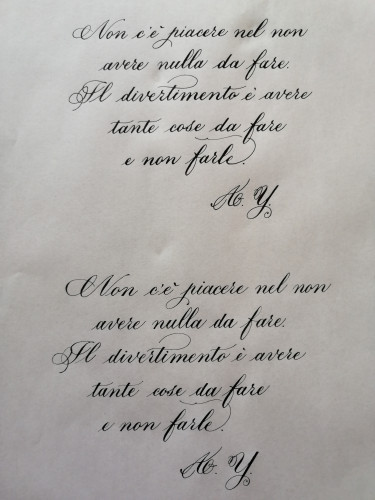 Non c'è piacere nel non
avere nulla da fare.
Il divertimento è avere
tante cose da fare
e non farle.
Ab. Y.
Non c'è piacere nel non
avere nulla da fare.
Il divertimento è avere
tante cose da fare
e non farle.
Ab. Y.